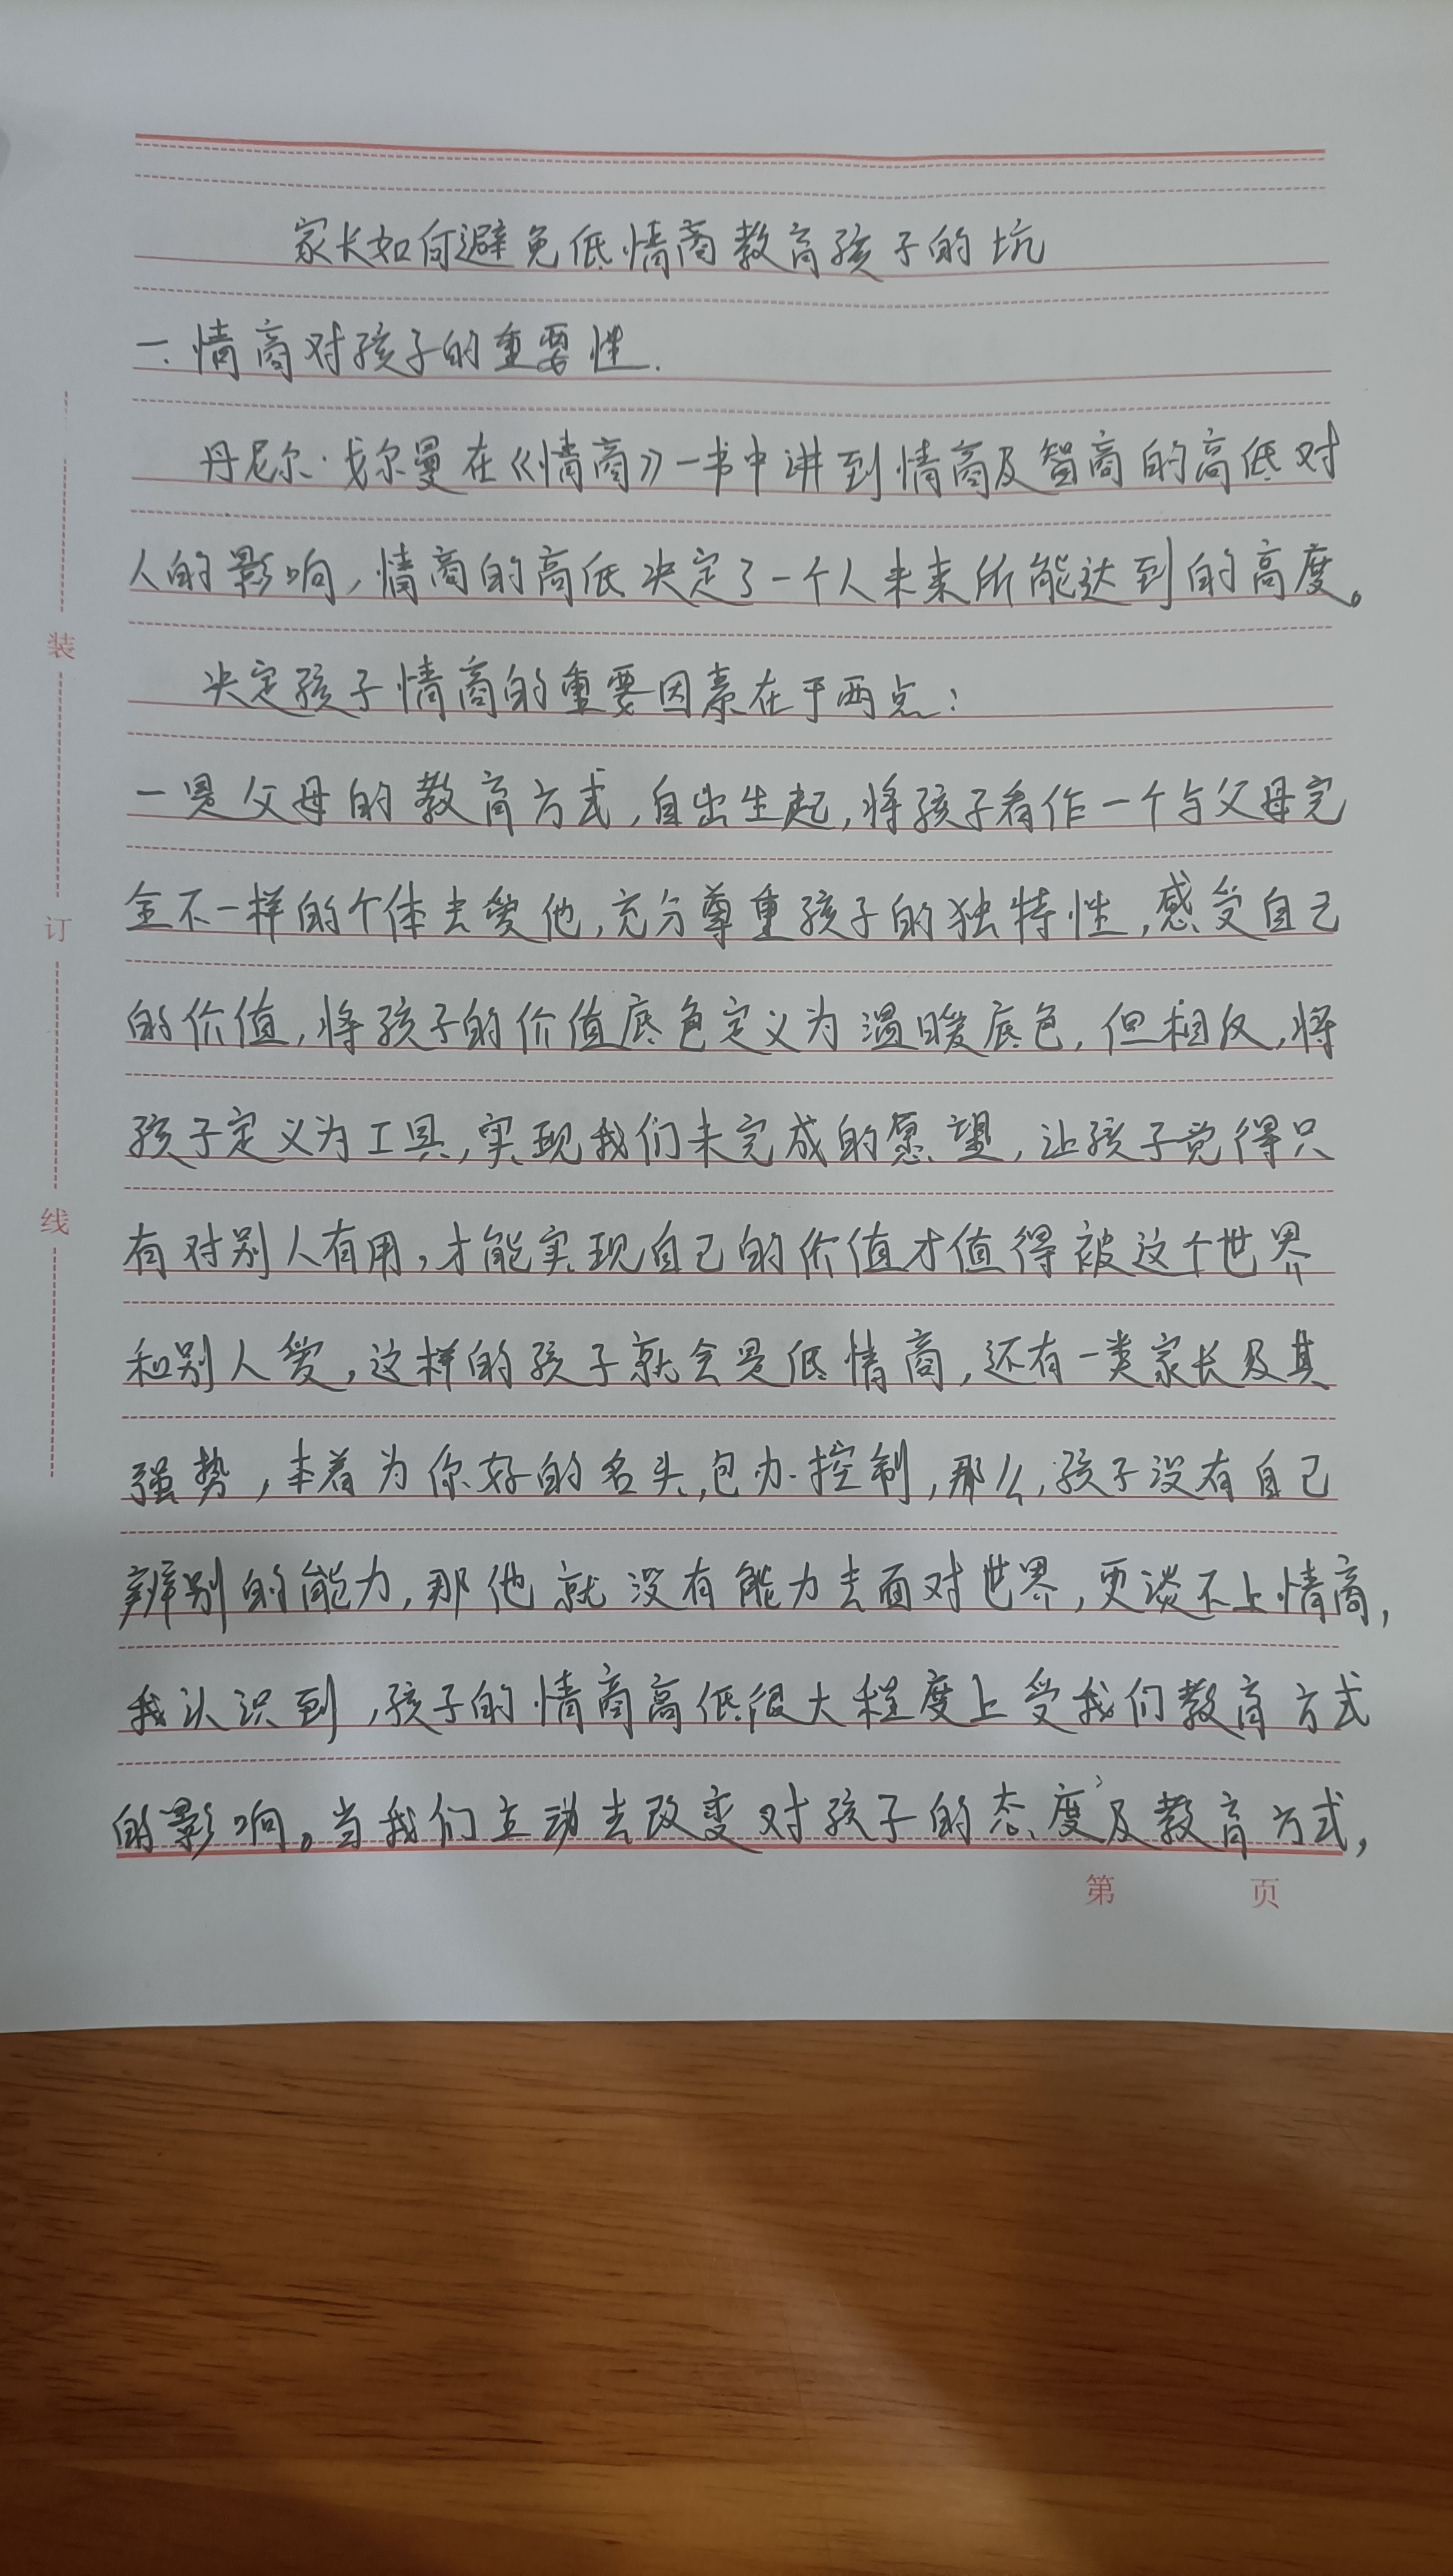 家长如何避免低情商教育孩子的坑
一.情商对孩子的重要性.
丹尼尔·戈尔曼在《情商》一书中讲到情商及智商的高低对
人的影响,情商的高低决定了一个人未来所能达到的高度。
决定孩子情商的重要因素在于两点:
一是父母的教育方式,自出生起,将孩子看作一个与父母完
全不一样的个体去爱他,充分尊重孩子的独特性,感受自己
的价值,将孩子的价值底色定义为温暖底色,但相反,将
孩子定义为工具,实现我们未完成的愿望,让孩子觉得只
有对别人有用,才能实现自己的价值才值得被这个世界
和别人爱,这样的孩子就会是低情商,还有一类家长及其
强势,本着为你好的名头,包办.控制,那么,孩子没有自己
辨别的能力,那他就没有能力去面对世界,更谈不上情商,
我认识到,孩子的情商高低很大程度上受我们教育方式
的影响。当我们主动去改变对孩子的态度及教育方式,
装
订
线
第 页